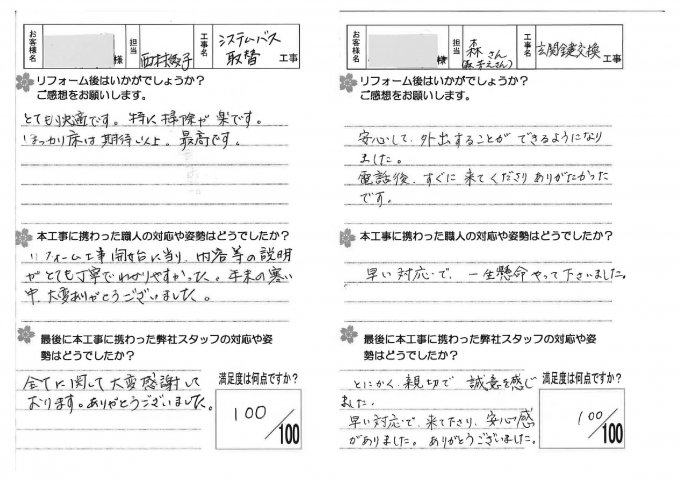 お客様名
様
担当
西村
工事名
システムバス
取替
工事
リフォーム後はいかがでしょうか?
ご感想をお願いします。
とても快適です。特に掃除が楽です。
ほっカリ床は期待以上。最高です。
本工事に携わった職人の対応や姿勢はどうでしたか?
リフォーム工事開始に当り、内容等の説明
がとても丁寧でわかりやすかった。年末の寒い
中、大変ありがとうございました。
最後に本工事に携わった弊社スタッフの対応や姿
勢はどうでしたか?
全てに関して大変感謝して
おります。ありがとうございました。
満足度は何点ですか?
100
/100
お客様名
様
担当
森さん
工事名
玄関鍵交換
工事
リフォーム後はいかがでしょうか?
ご感想をお願いします。
安心して、外出することができるようになり
ました。
電話後、すぐに来てくださりありがたかった
です。
本工事に携わった職人の対応や姿勢はどうでしたか?
早い対応で、一生懸命やって下さいました。
最後に本工事に携わった弊社スタッフの対応や姿
勢はどうでしたか?
とにかく、親切で誠意を感じ
ました。
早い対応で、来て下さり、安心感
がありました。ありがとうございました。
満足度は何点ですか?
100
/100